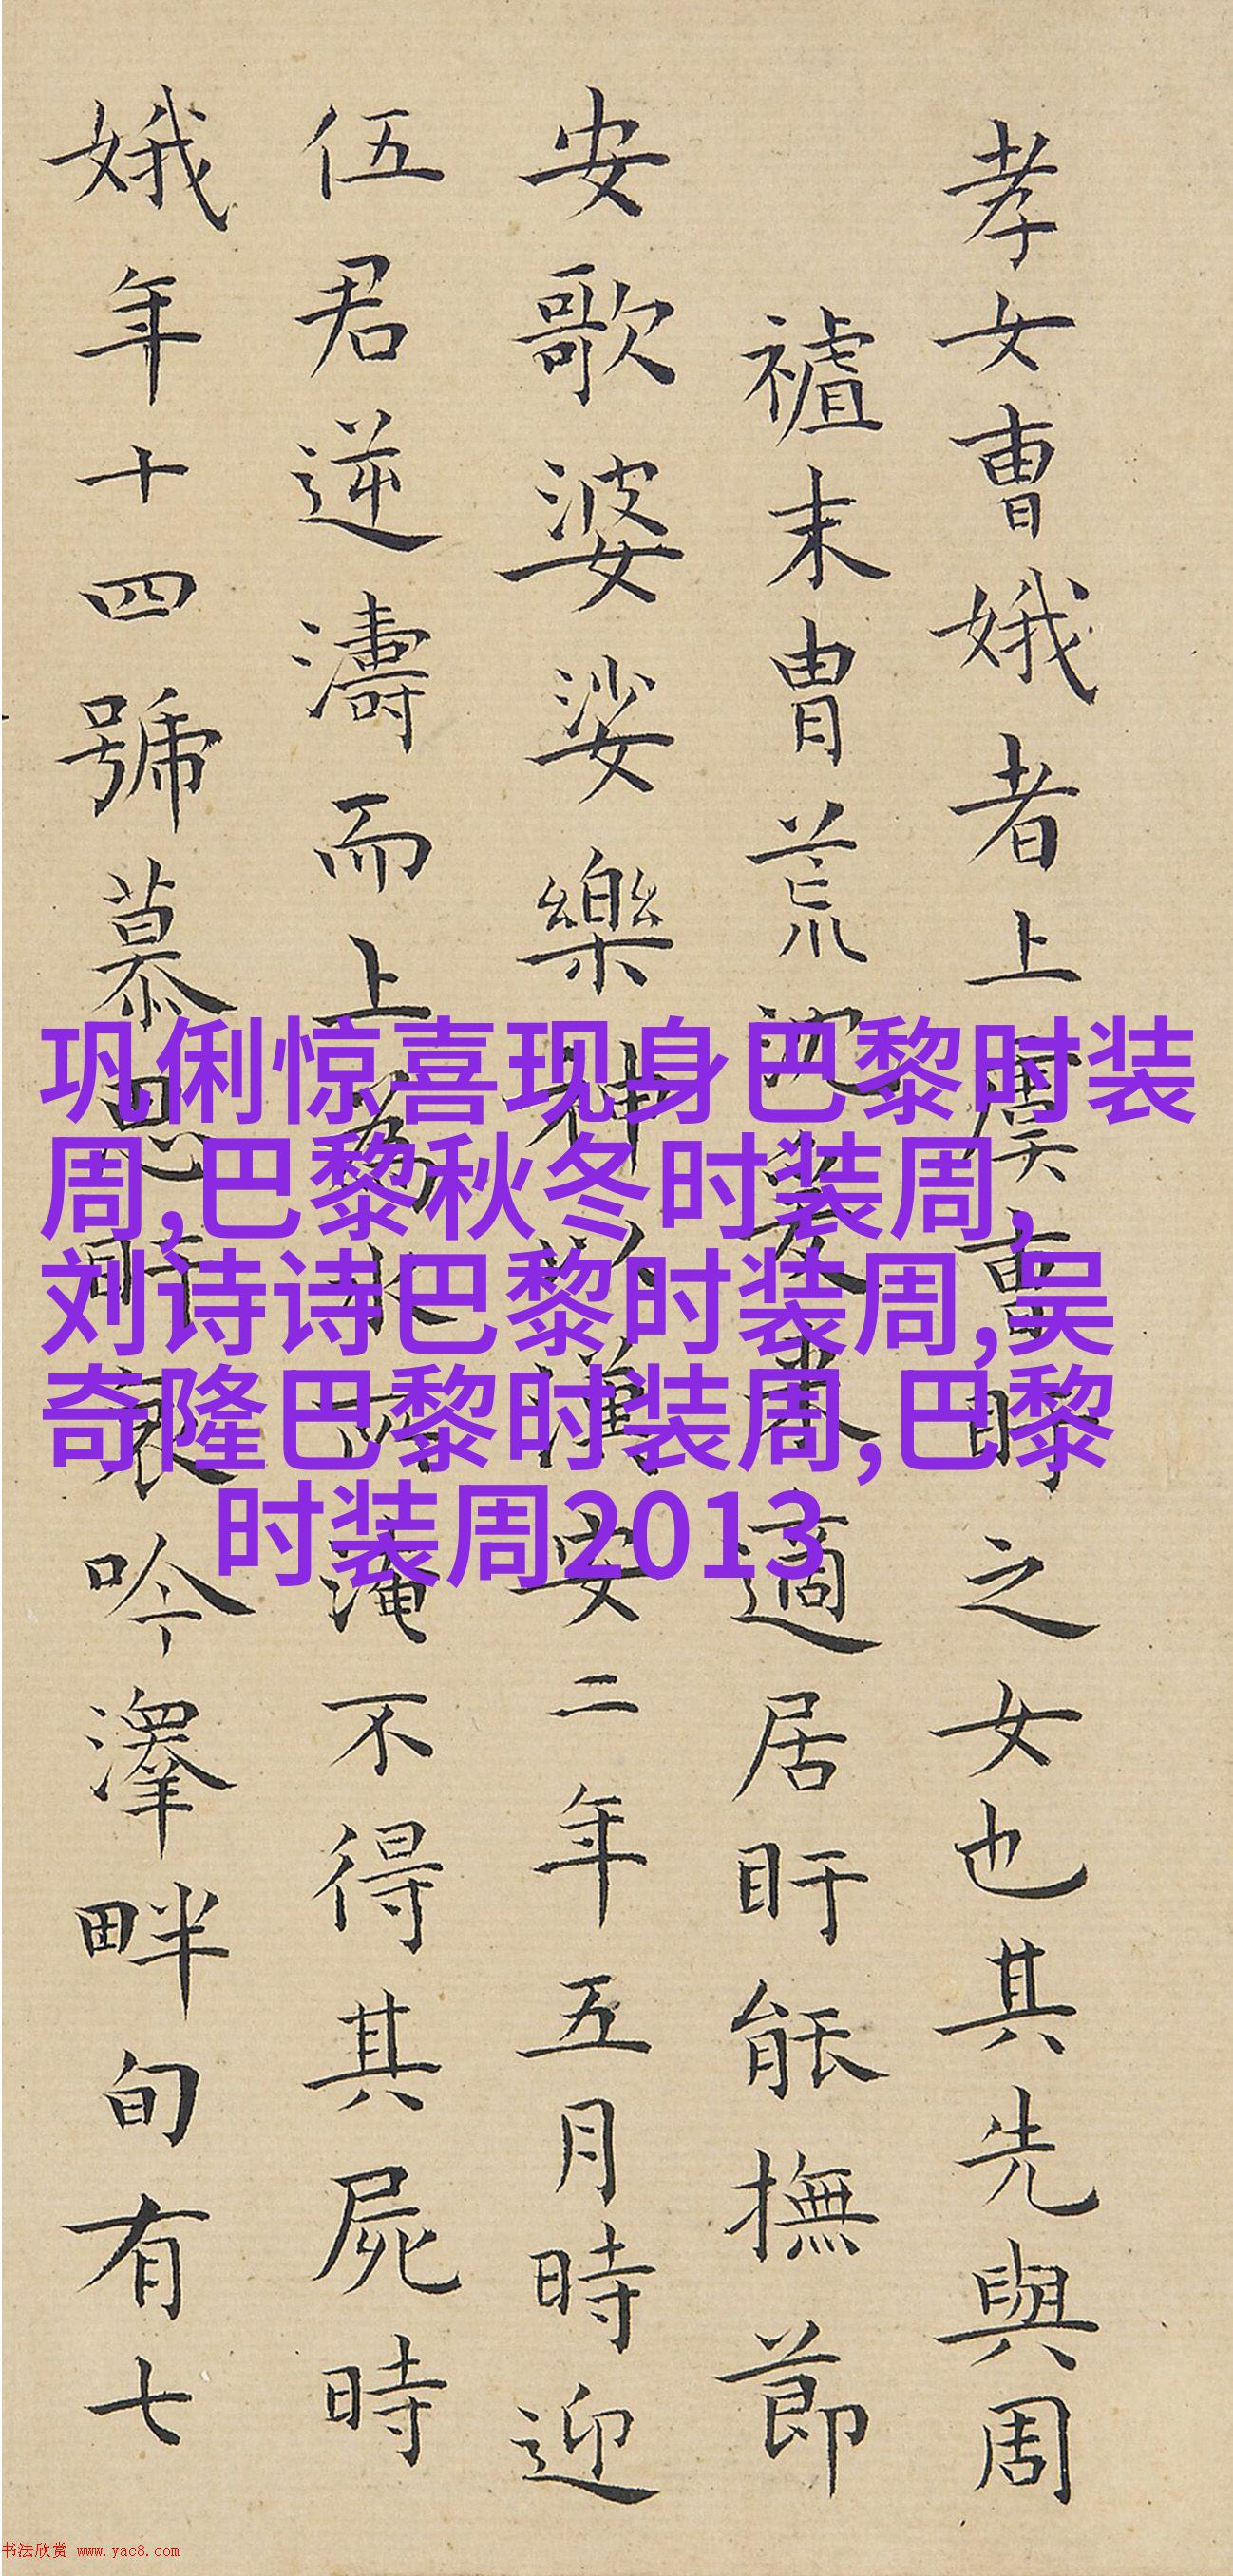 孝女曹娥者上虞曹盱之女也其先與周
末胄荒沈爰来適居盱能撫節
安歌婆娑樂神以漢安二年五月時迎
伍君逆濤而上為水所淹不得其屍時
娥年十四號慕思盱哀吟澤畔旬有七
巩俐惊喜现身巴黎时装
周,巴黎秋冬时装周,
刘诗诗巴黎时装周,吴
奇隆巴黎时装周,巴黎
时装周2013
书法欣赏 www.yac8.com